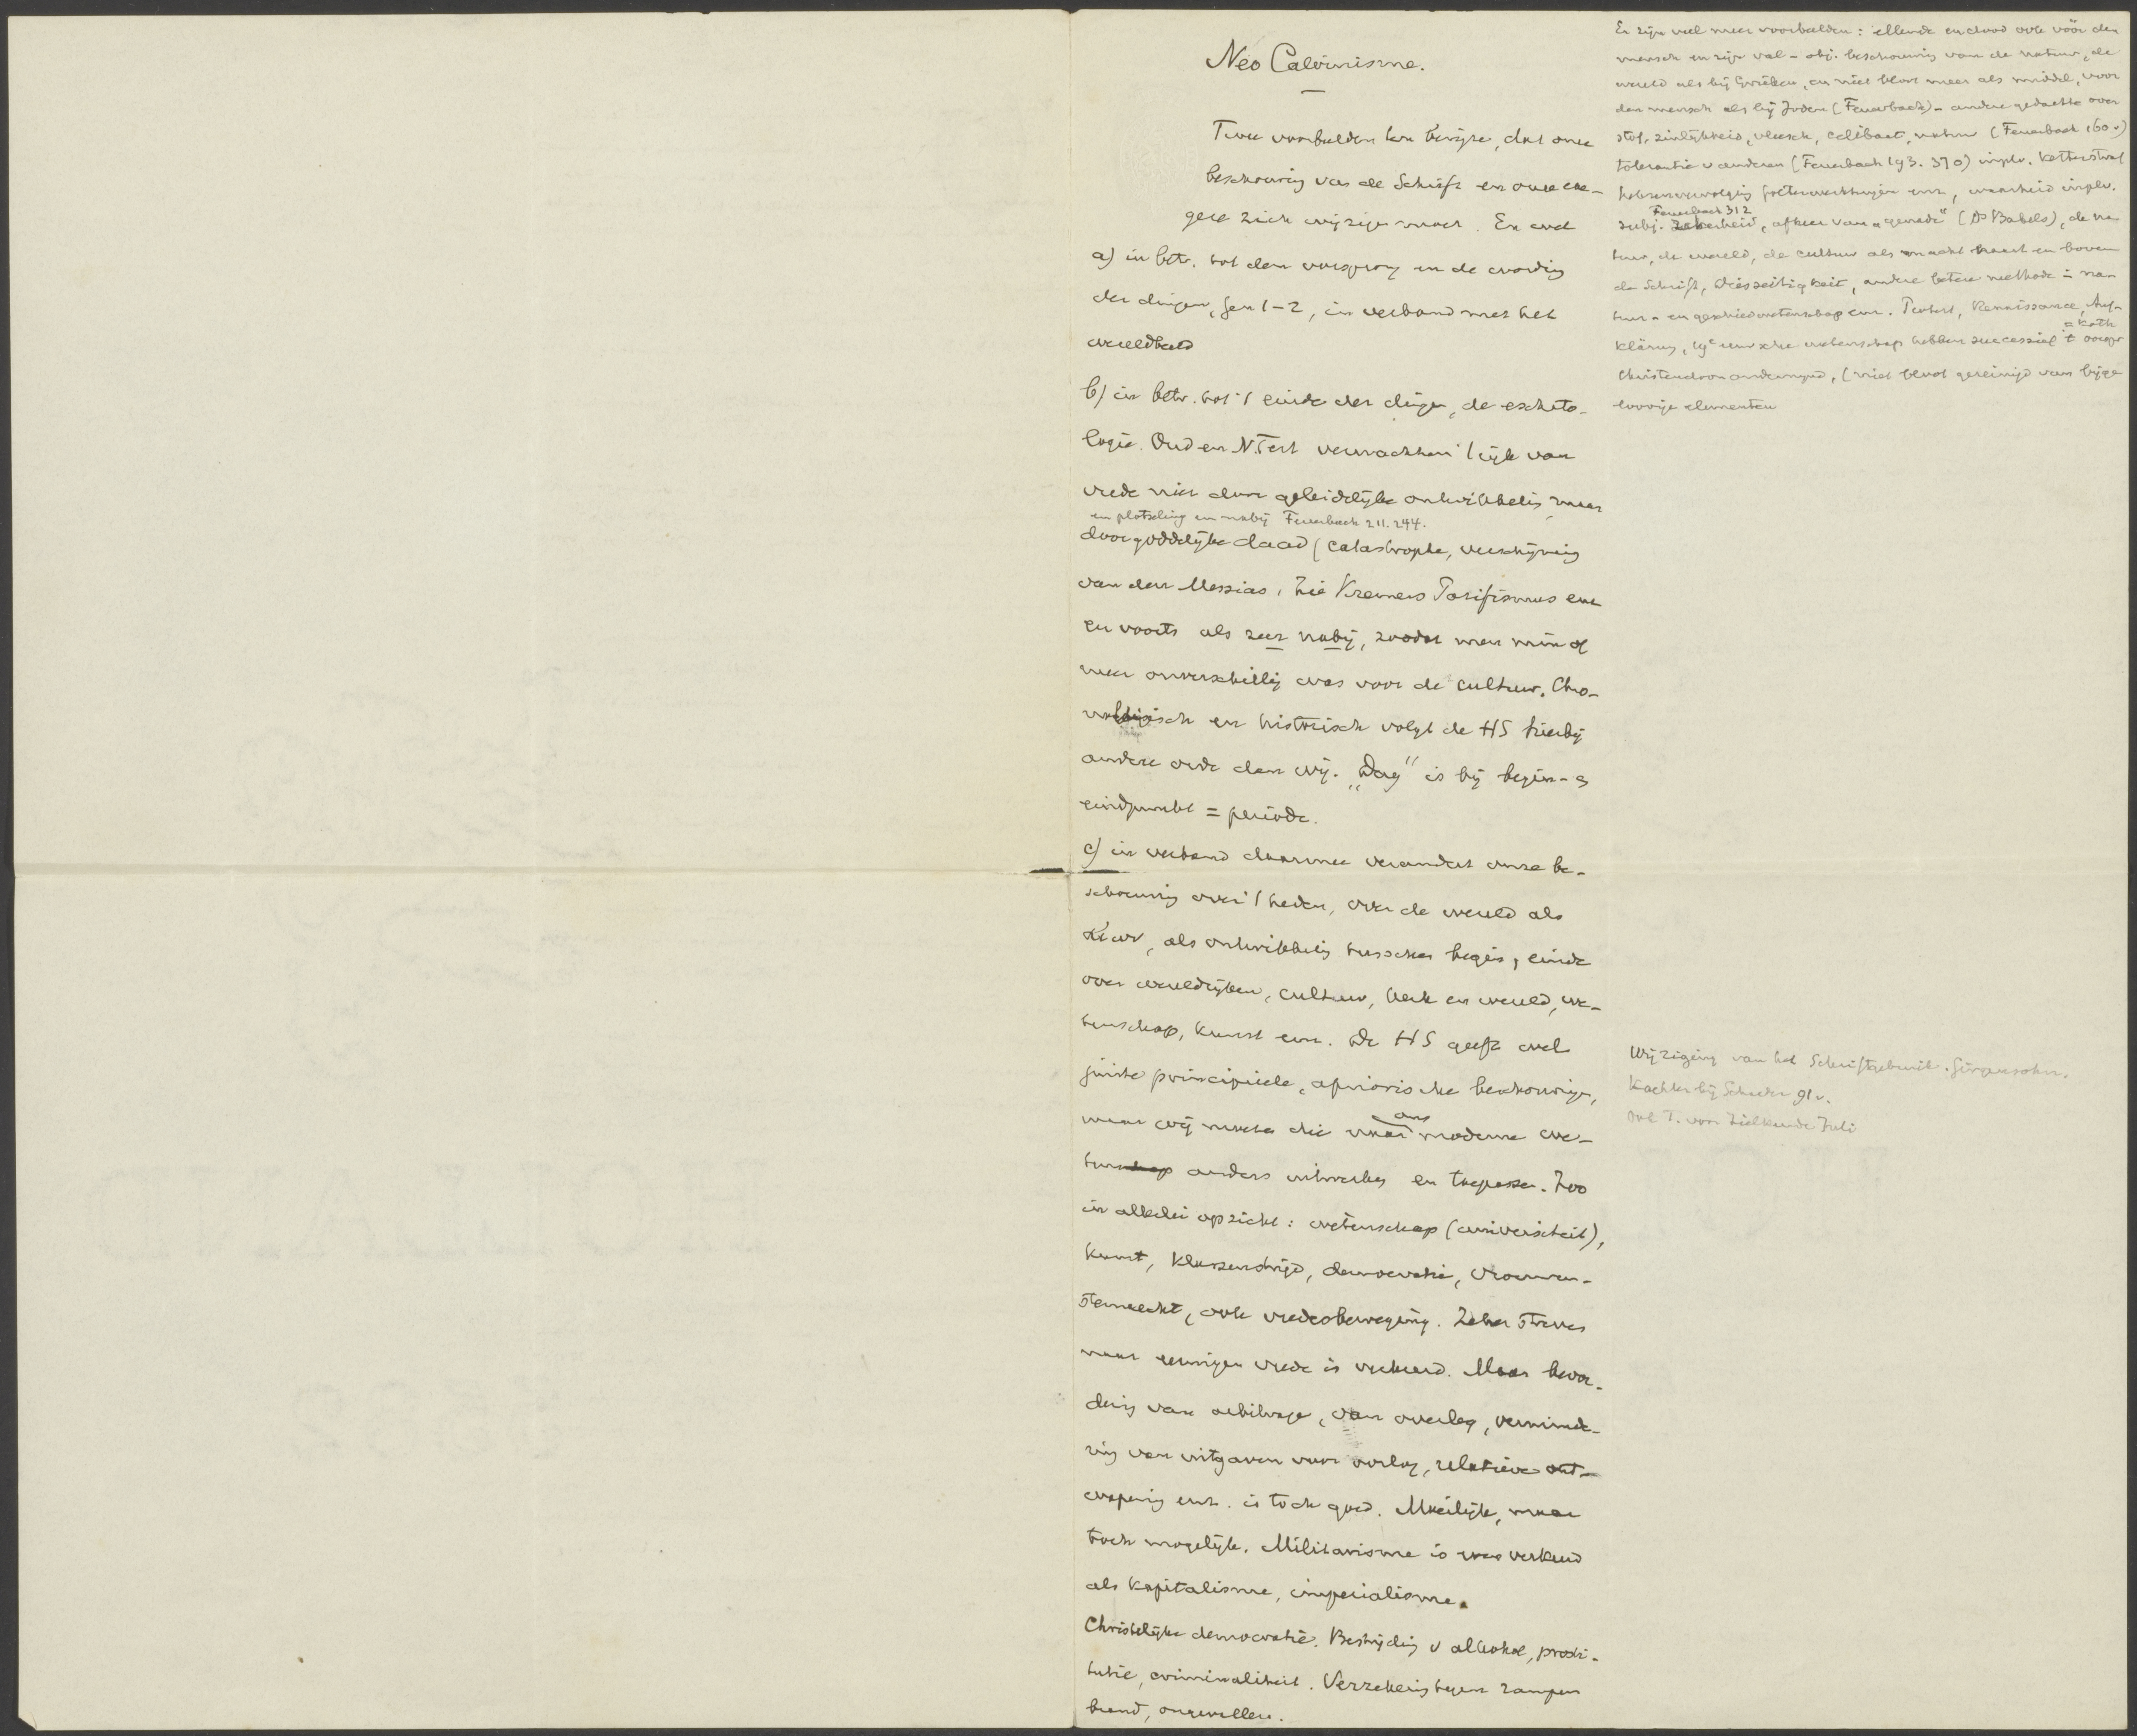 Neo Calvinisme.
Twee voorbeelden ten bewijze, dat onze
beschouwing van de Schrift en onze exe-
gese zich wijzigen moet. En wel
a) in betr. tot den oorsprong en de wording
der dingen, Gen 1-2, in verband met het
wereldbeeld
b) in betr. tot 't einde der dingen, de eschato-
logie. Oud en N. Test verwachten 't rijk van
vrede niet door geleidelijke ontwikkeling maar
en plotseling en nabij Feuerbach 211. 244.
door goddelijke daad (catastrophe, verschijning
van den Messias, zie Kremers Pasifismus enz
en voorts als zeer nabij, zoodat men min of
meer onverschillig was voor de cultuur. Chro-
nologisch en historisch volgt de HS hierbij
andere orde dan wij. „Dag" is bij begin- en
eindpunkt = periode.
c) in verband daarmee verandert onze be-
schouwing over 't heden, over de wereld als
αιων, als ontwikkeling tusschen begin, einde
over wereldrijken, cultuur, kerk en wereld, we-
tenschap, kunst enz. De HS geeft wel
juiste principieele, apriorische beschouwingen,
maar wij moeten die naar onze moderne we-
ten anders uitwerken en toepassen. Zoo
in allerlei opzicht: wetenschap (universiteit),
kunst, klassenstrijd, democratie, vrouwen-
stemrecht, ook vredesbeweging. Zeker streven
naar eeuwigen vrede is verkeerd. Maar bevor-
dering van arbitrage, van overleg, verminde-
ring van uitgaven voor oorlog, relatieve ont-
wapening enz. is toch goed. Moeilijk, maar
toch mogelijk. Militarisme is even verkeerd
als kapitalisme, imperialisme.
Christelijke democratie. Bestrijding v alcohol, prosti-
tutie, criminaliteit. Verzekering tegen rampen
brand, ongevallen.
Er zijn veel meer voorbeelden: ellende en dood ook vóór den
mensch en zijn val - obj. beschouwing van de natuur, de
wereld als bij Grieken, en niet bloot meer als middel, voor
den mensch als bij Joden (Feuerbach) - andere gedachte over
stof, zinlijkheid, vleesch, celibaat, natuur (Feuerbach 160 v)
tolerantie v anderen (Feuerbach 193. 370) inplv. ketterstraf
heksenvervolging folterwerktuigen enz, waarheid inplv.
Feuerbach 312
subj. zekerheid, afkeer van „genade" (Ds Bakels), de na-
tuur, de wereld, de cultuur als macht naast en boven
de Schrift, Diesseitigkeit, andere betere methode in na-
tuur- en geschiedwetenschap enz. Protest, Renaissance, Auf-
= kath
klärung, 19e eeuwsche wetenschap hebben successief 't oorspr
Christendom ondermijnd, (niet bevol gereinigd van bijge-
loovige elementen
Wijziging van het Schriftgebruik. Girgensohn.
Kaehler bij Schaeder 91 v.